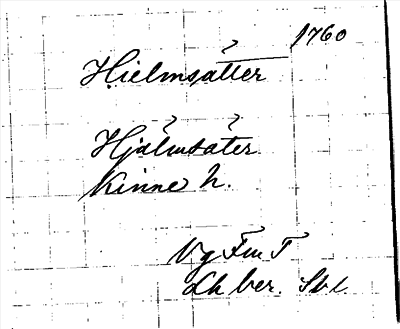 1760
Hielmsätter
Hjälmsäter
Kinne h.
Vg Fm T
Lh ber.